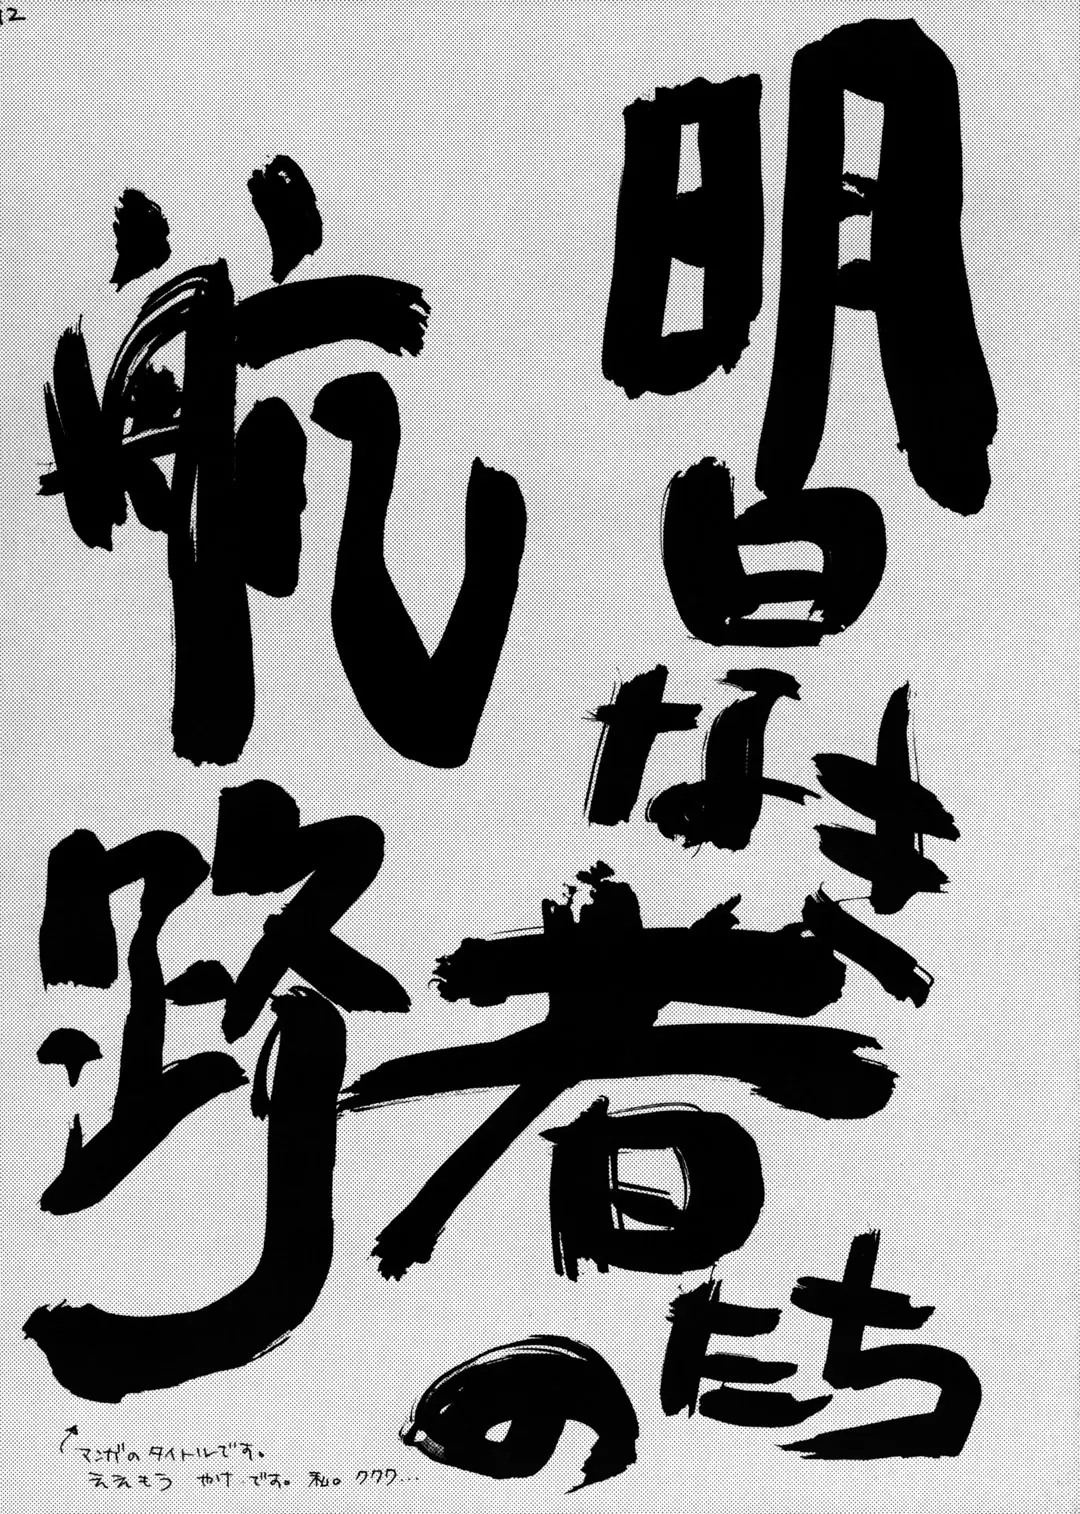 12
明日なき者たちの
荒野
マンガのタイトルです。
ええもう やけです。私。ククク…